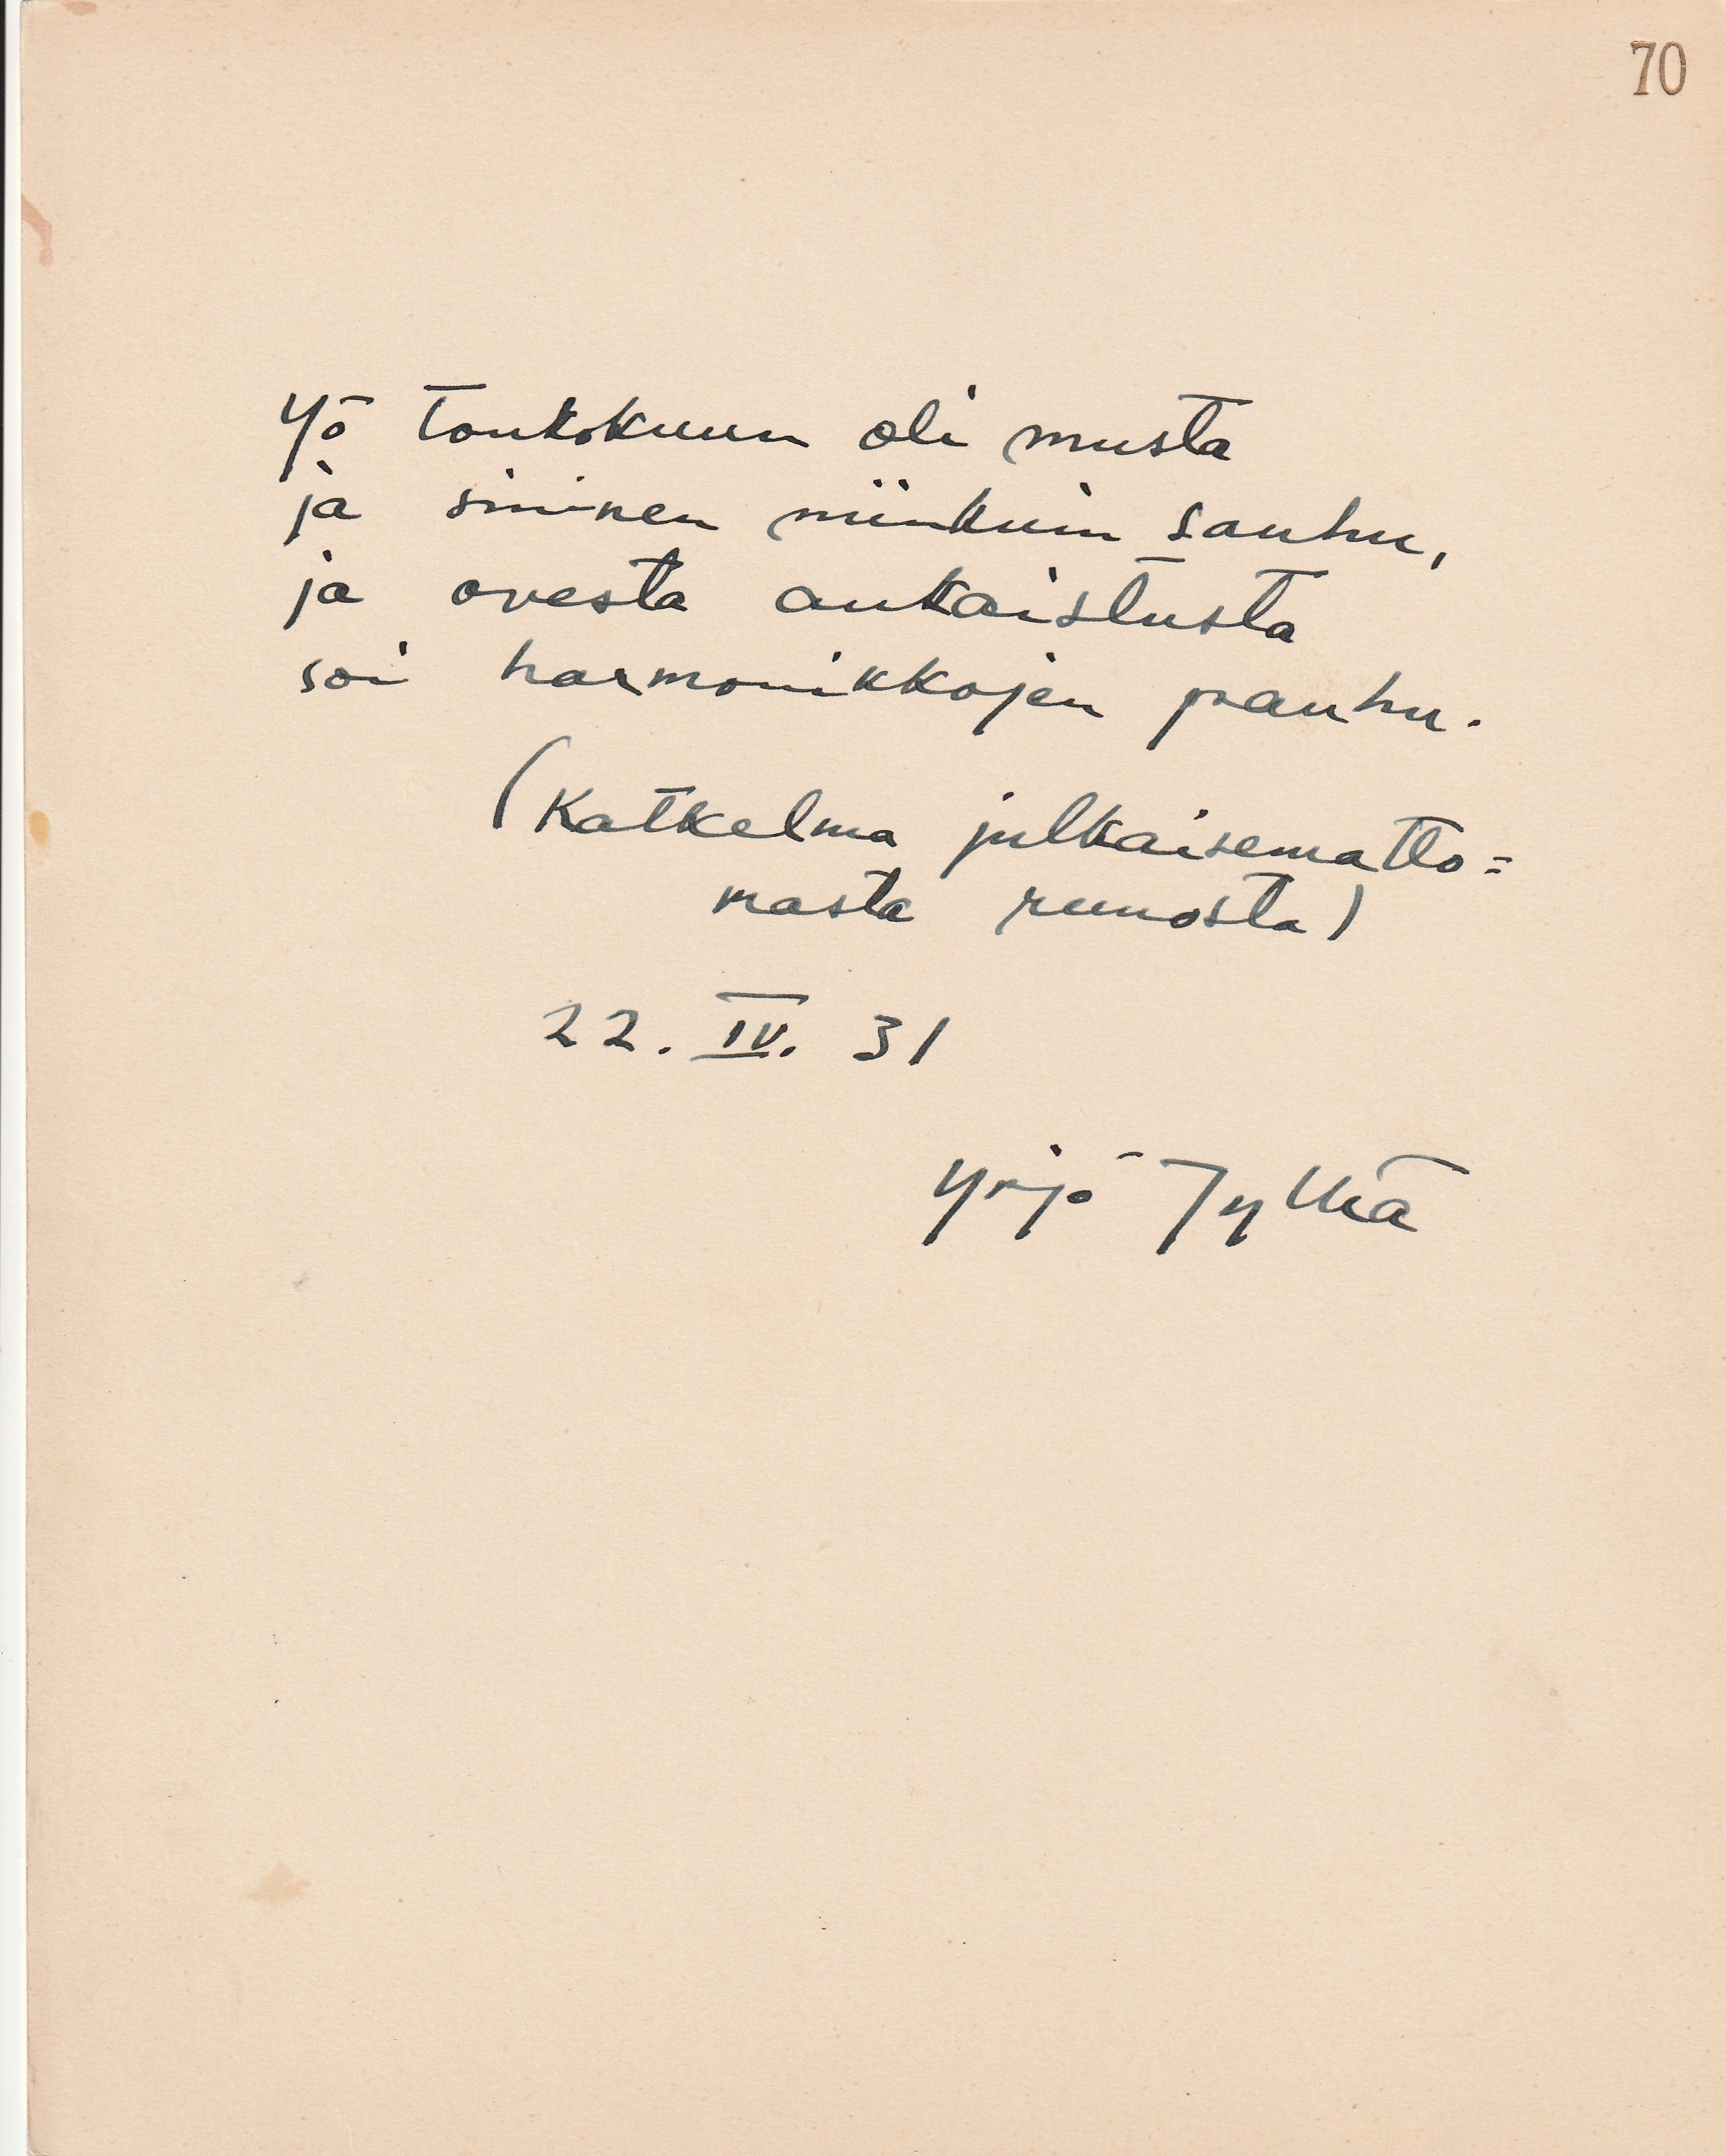 70
Yö toukokuun oli musta
ja sininen niinkuin sauhu,
ja ovesta aukaistusta
soi harmonikkojen pauhu.
(Katkelma julkaisematto=
masta runosta)
22. IV. 31
Yrjö Jylhä